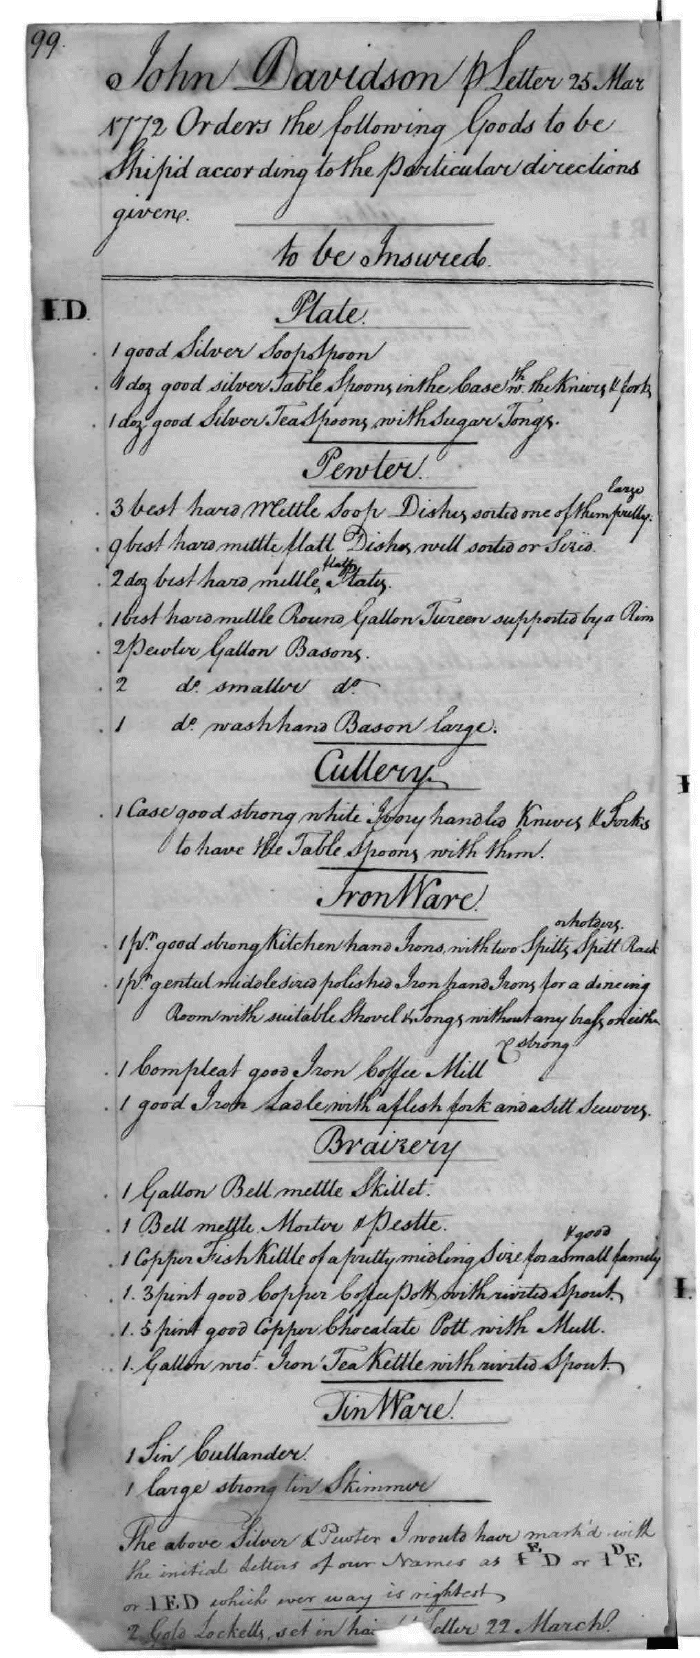 99.
John Davidson p Letter 25 Mar
1772 Orders the following Goods to be
Ship'd according to the Particular directions
given.
to be Insured.
I.D.
Plate.
1 good Silver Soop Spoon
1 doz good silver Table Spoons in the Case wth. the Knives & forks
1 doz good Silver Tea Spoons, with Sugar Tongs.
Pewter.
large
3 best hard Mettle Soop Dishes sorted one of them pretty.
9 best hard mettle flatt Dishes well sorted or Sized.
flatt
2 doz best hard mettle ^ Plates.
1 best hard mettle Round Gallon Tureen supported by a Rim
2 Pewter Gallon Basons.
2 do. smaller do.
1 do. washhand Bason large.
Cutlery.
1 Case good strong white Ivory handled Knives & Forks
to have the Table Spoons with them.
Iron Ware.
or holders.
1 pr. good strong Kitchen hand Irons, with two Spitts, Spitt Rack
1 pr. genteel middle sized polished Iron hand Irons for a dineing
Room with suitable Shovel & Tongs without any brass on either
& strong
1 Compleat good Iron Coffee Mill
1 good Iron Ladle with a flesh fork and a Sett Scewers.
Braizery
1 Gallon Bell mettle Skillet.
1 Bell mettle Morter & Pestle.
& good
1 Copper Fish Kettle of a pretty midling Size for a small family
1. 3 pint good Copper Coffee Pott with rivited Spout.
1. 5 pint good Copper Chocalate Pott with Mull.
1. Gallon wrot. Iron Tea Kettle with rivited Spout.
Tin Ware.
1 Tin Cullander.
1 large strong tin Skimmer
The above Silver & Pewter I would have mark'd with
the initial Letters of our Names as IED or IDE,
or IED which ever way is rightest
2 Gold Locketts, set in Letter 22 March.